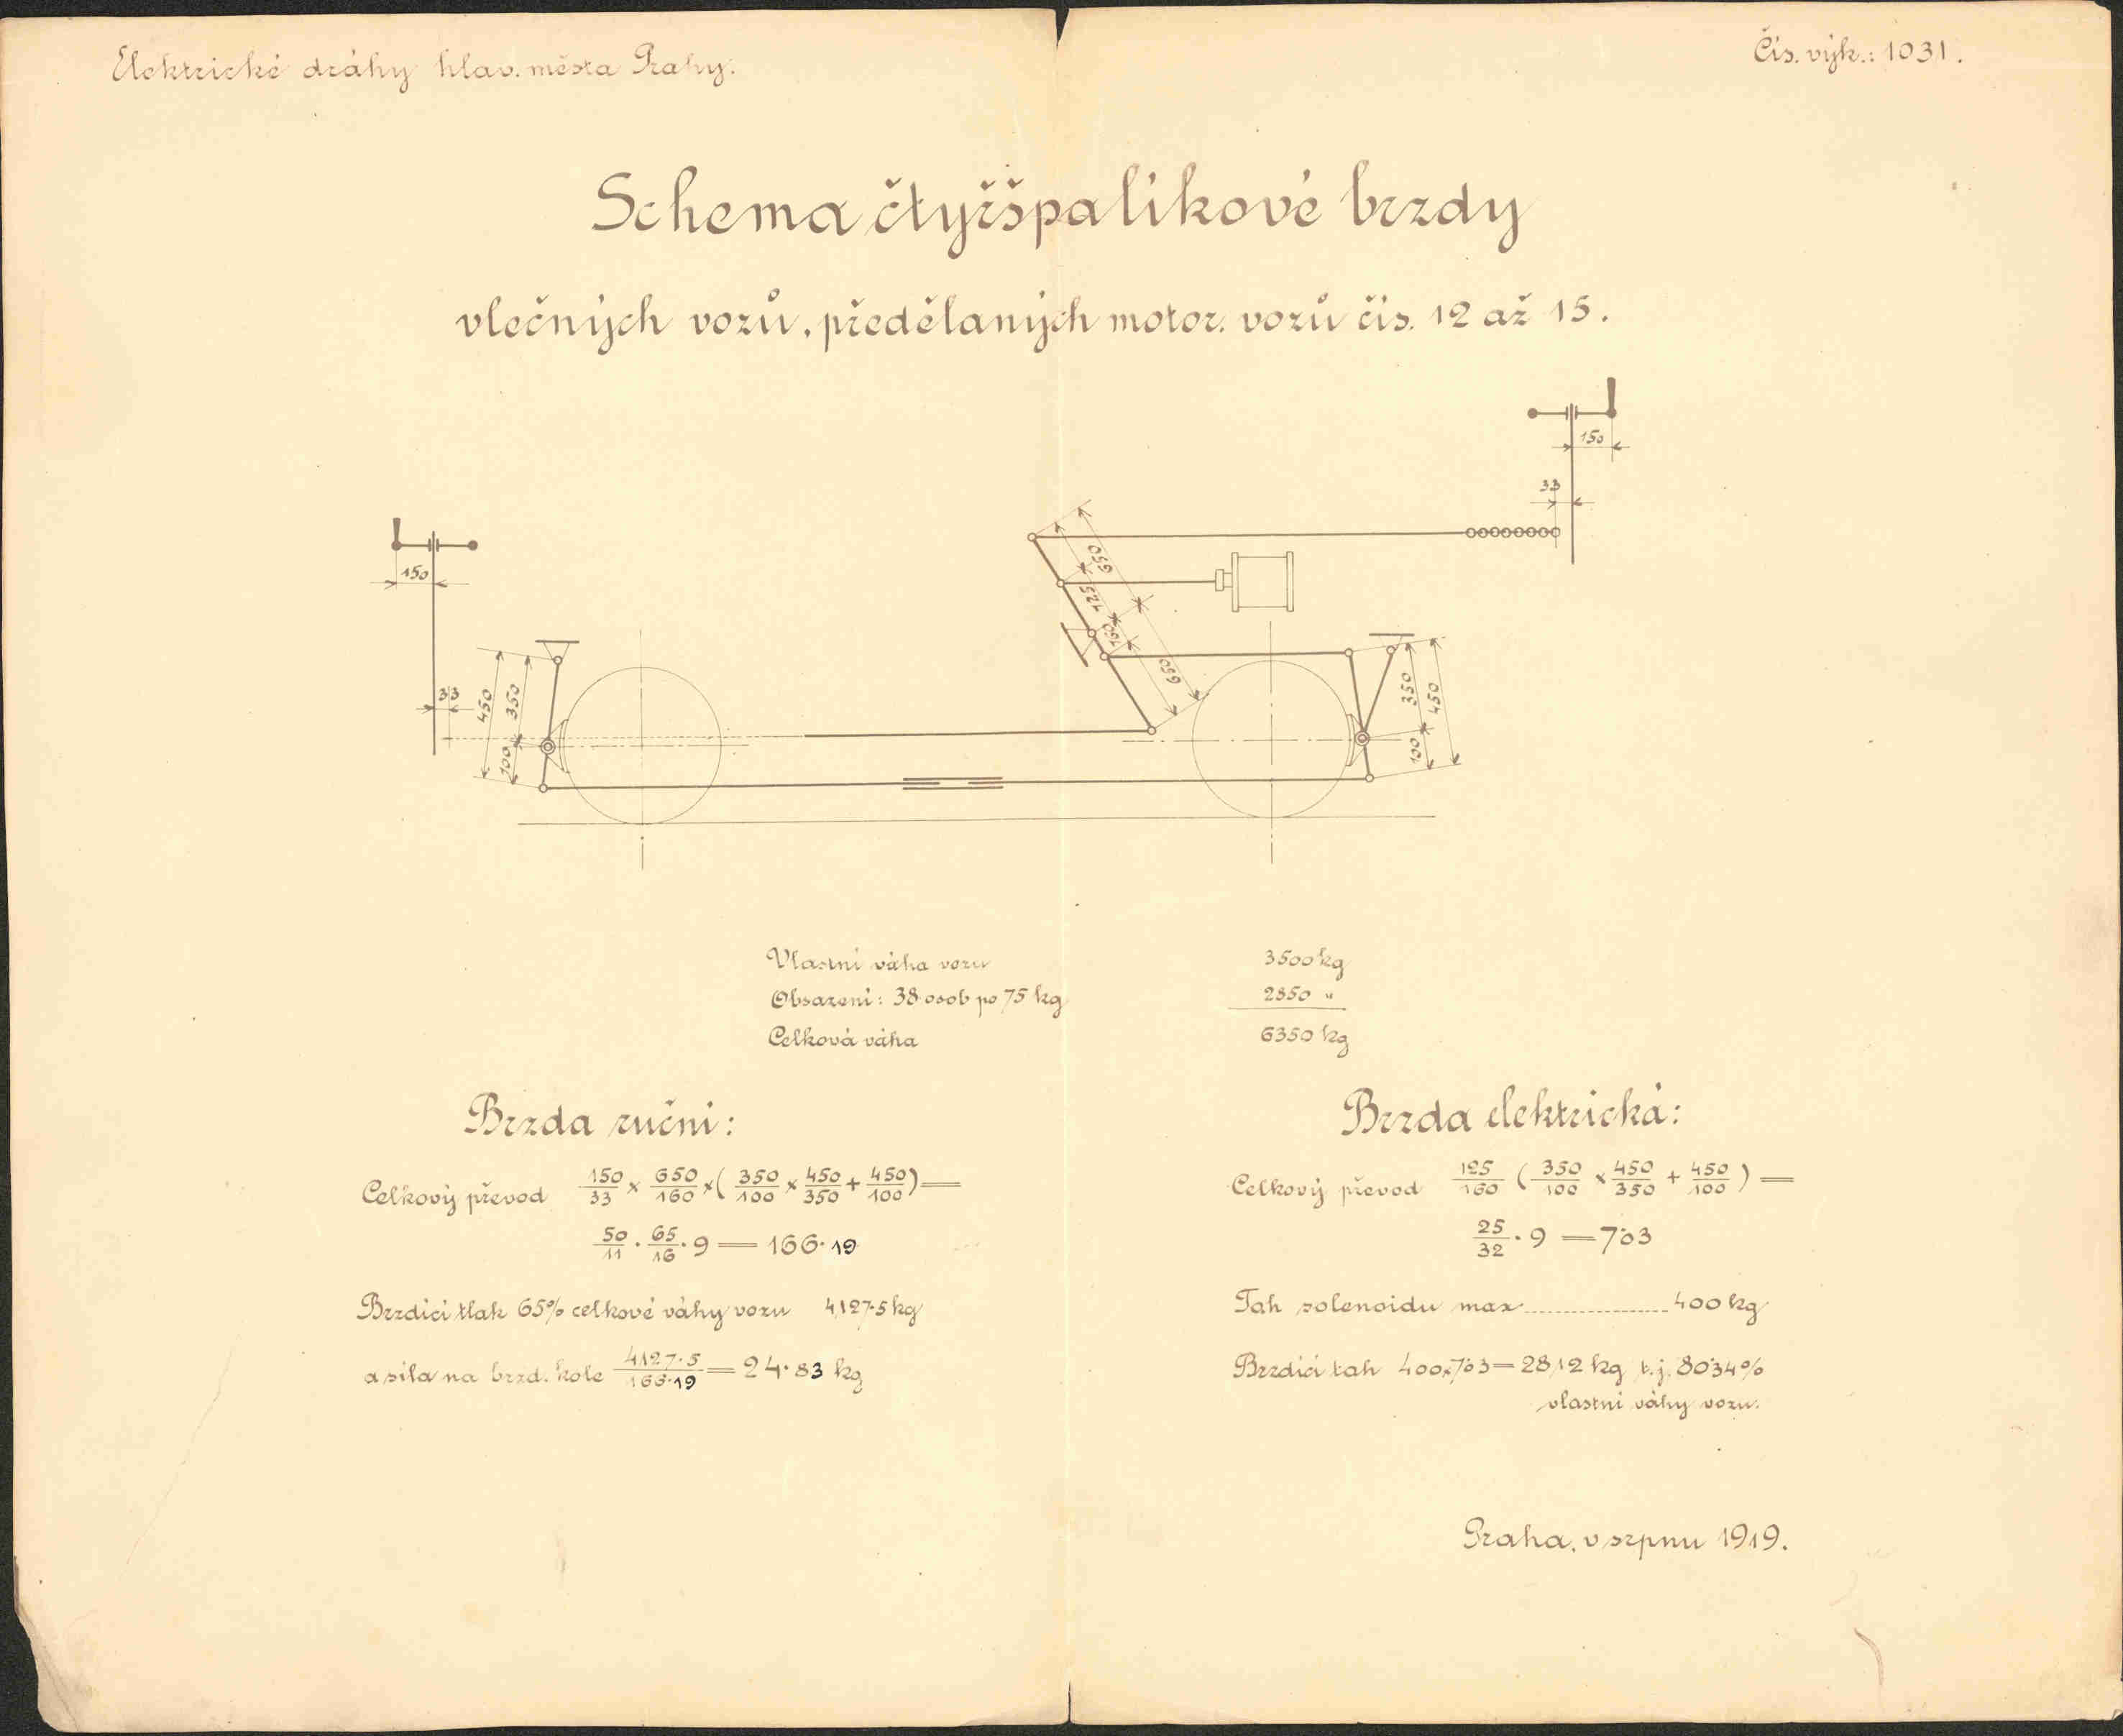 Elektrické dráhy hlav. města Prahy.
Čís. výk.: 1031.
Schema čtyřšpalíkové brzdy
vlečných vozů, předělaných motor. vozů čís. 12 až 15.
150
33
150
33
450
350
100
650
425
160
650
350
450
100
Vlastní váha vozu 3500 kg
Obsazení: 38 osob po 75 kg 2850 "
Celková váha 6350 kg
Brzda ruční:
Celkový převod 150/33 × 650/160 × ( 350/100 × 450/350 + 450/100 ) =
50/11 · 65/16 · 9 = 166·19
Brzdící tlak 65% celkové váhy vozu 4127·5 kg
a síla na brzd. kole 4127·5/166·19 = 24·83 kg
Brzda elektrická:
Celkový převod 125/160 ( 350/100 × 450/350 + 450/100 ) =
25/32 · 9 = 7·03
Tah solenoidu max. 400 kg
Brzdící tah 400×7·03 = 2812 kg t. j. 80·34%
vlastní váhy vozu.
Praha, v srpnu 1919.